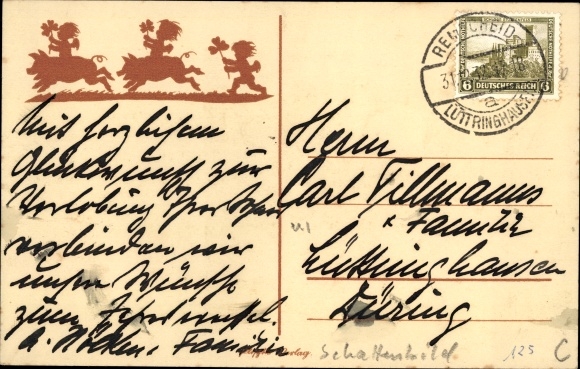 REMSCHEID
LÜTTRINGHAUSEN
a
6 DEUTSCHES REICH 6
Mit herzlichem
Glückwunsch zur
Verlobung Ihrer
verbinden wir
unsere Wünsche
zum Jahreswechsel.
Familie
Herrn
Carl Tillmanns
& Familie
Lüttringhausen
Düring
Verlag
Schattenbild
125 C